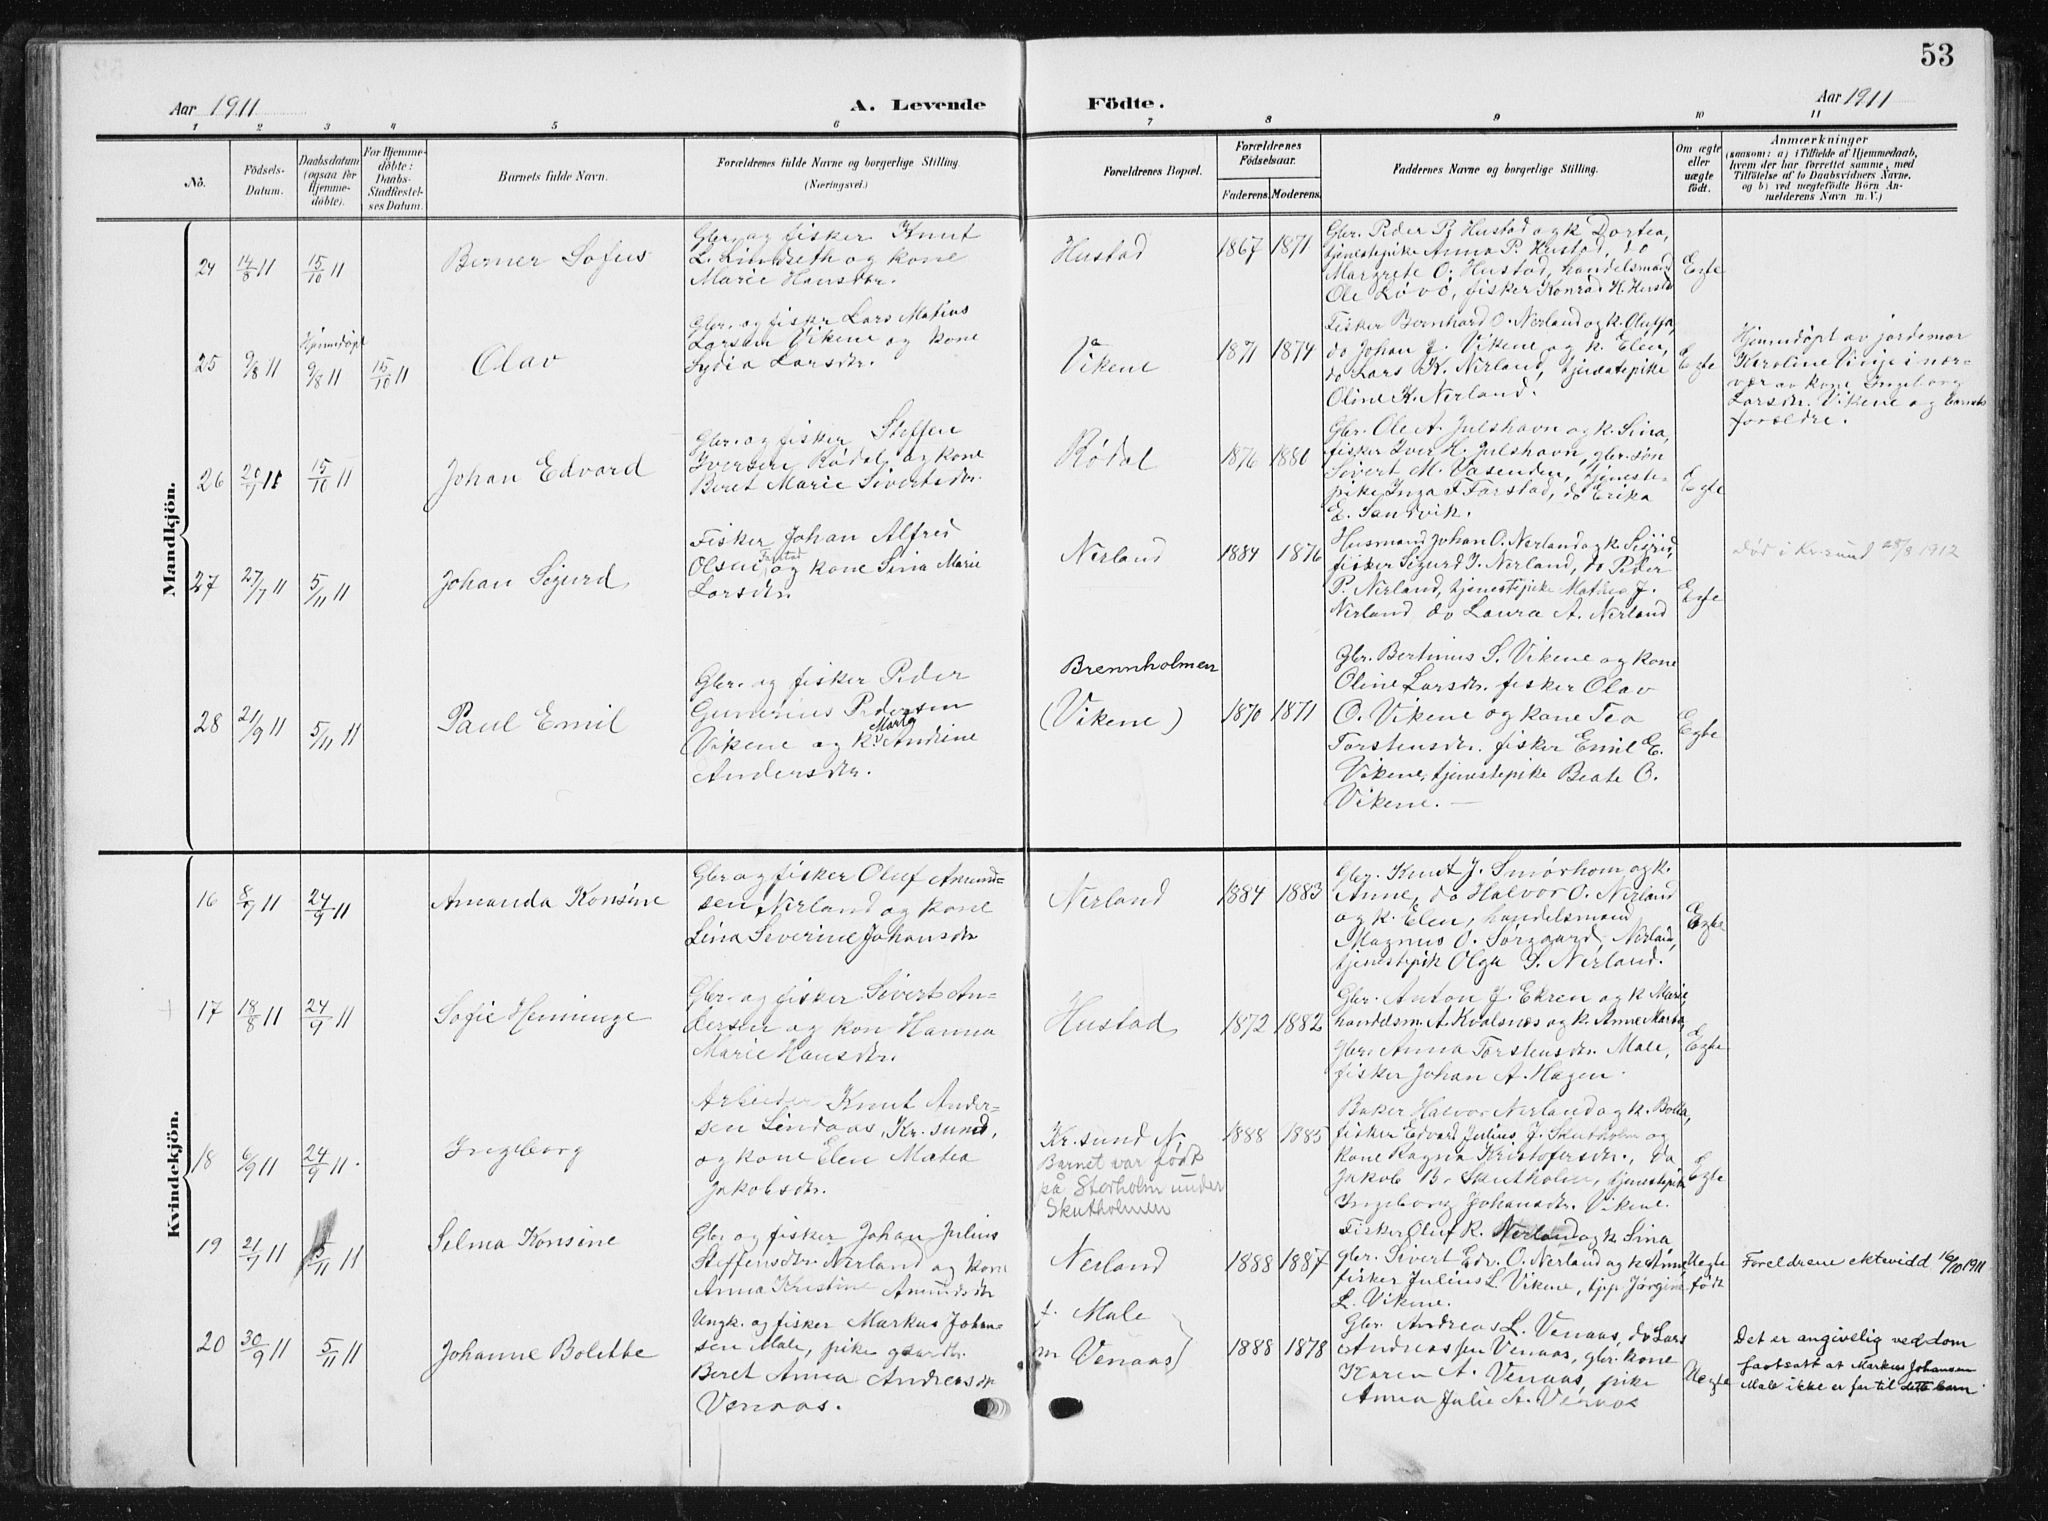 53
Aar 1911
A. Levende
Födte.
Aar 1911
1 2 3 4 5 6 7 8 9 10 11
No.
Födsels-
Datum.
Daabsdatum
(ogsaa for
Hjemme-
döbte).
For Hjemme-
döbte:
Daabs-
Stadfæstel-
ses Datum.
Barnets fulde Navn.
Forældrenes fulde Navne og borgerlige Stilling.
(Næringsvei.)
Forældrenes Bopæl.
Forældrenes
Födselsaar.
Faderens. Moderens.
Faddernes Navne og borgerlige Stilling.
Om ægte
eller
uægte
födt.
Anmærkninger
(saasom: a) i Tilfælde af Hjemmedaab,
hvem der har forrettet samme, med
Tilföielse af to Daabsvidners Navne.
og b) ved uægtefödte Börn An-
melderens Navn m. V.)
Mandkjön.
24
14/8 11
15/10 11
Berner Sofus
Gbr. og fisker Knut
L. Lindseth og kone
Marie Hansdtr.
Hustad
1867 1871
Gbr. Peder P. Hustad og k. Dortea,
tjenestepike Anna P. Hustad, do
Margrete O. Hustad, handelsmand
Ole Løvø, fisker Konrad H. Hustad
Egte
25
9/8 11
Hjemmedøpt
9/8 11
15/10 11
Olav
Gbr. og fisker Lars Matias
Larsen Vikene og kone
Lydia Larsdtr.
Vikene
1871 1874
Fisker Bernhard O. Nerland og k. Oluffa,
do Johan J. Vikene og k. Elen,
do Lars K. Nerland, tjenestepike
Oline K. Nerland.
Egte
Hjemmedøpt av jordemor
Karoline Viige i nær-
vær av kone Ingeborg
Larsdtr. Vikene og barnets
forældre.
26
20/9 11
15/10 11
Johan Edvard
Gbr. og fisker Steffen
Iversen Rødal og kone
Beret Marie Sivertsdtr.
Rødal
1876 1880
Gbr. Ole A. Julshavn og k. Sina,
fisker Iver H. Julshavn, gbr. søn
Sivert M. Vasenden, tjeneste-
pike Inga F. Farstad, do Erika
E. Sandvik.
Egte
27
27/7 11
5/11 11
Johan Sigurd
Fisker Johan Alfred
Olsen Farstad og kone Sina Marie
Larsdtr.
Nerland
1884 1876
Husmand Johan O. Nerland og k. Sigrid,
fisker Sigurd J. Nerland, do Peder
P. Nerland, tjenestepike Mathea J.
Nerland, do Laura A. Nerland
Egte
død i Kr.sund 28/8 1912
28
21/9 11
5/11 11
Paul Emil
Gbr. og fisker Peder
Gunerius Pedersen
Vikene og k. Marta Andrine
Andersdtr.
Brennholmen
(Vikene)
1870 1871
Gbr. Bertinus S. Vikene og kone
Oline Larsdtr. fisker Olav
O. Vikene og kone Tea
Torstensdtr. fisker Emil E.
Vikene, tjenestepike Beate O.
Vikene.
Egte
Kvindekjön.
16
8/7 11
24/9 11
Amanda Konsine
Gbr og fisker Oluf Amund-
sen Nerland og kone
Lina Severine Johansdtr
Nerland
1884 1883
Gbr. Knut J. Smørhom og k.
Anne, do Halvor O. Nerland
og k. Elen, handelsmand
Magnus O. Sørgaard, Nerland,
tjenestepik Olga S. Nerland.
Egte
17
18/8 11
24/9 11
Sofie Heminge
Gbr. og fisker Sivert An-
dersen og kon Hanna
Marie Hansdtr.
Hustad
1872 1882
Gbr. Anton J. Ekren og k. Marie,
handelsm. A. Kvalsnæs og k. Anne Marta,
Gbr. Anna Torstensdtr. Male,
fisker Johan A. Hagen.
Egte
18
6/9 11
24/9 11.
Ingeborg
Arbeider Knut Ander-
sen Lindaas, Kr.sund,
og kone Elen Matea
Jakobsdtr.
Kr.sund N.
Barnet var født
på Storholm under
Skutholmen
1888 1885
Baker Halvor Nerland og k. Bolla,
fisker Edvard Julius J. Skutholm og
kone Ragna Kristofersdtr., do
Jakob B. Skutholm, tjenestepike
Ingeborg Johansdtr. Vikene.
Egte
19
21/7 11
5/11 11
Selma Konsine
Gbr og fisker Johan Julius
Steffensdtr. Nerland og kone
Anna Kristine Amundsdtr
Nerland
1888 1887
Fisker Oluf R. Nerland og k. Sina,
gbr. Sivert Edv. O. Nerland og k. Anne,
fisker Julius L. Vikene, tjp. Jørgine
L. Vikene.
Uegte
født
Foreldrene ektevidd 16/10 1911
20
30/9 11
5/11 11
Johanne Bolette
Ungk. og fisker Markus Johan-
sen Male, pike gaardtr.
Beret Anna Andreasdtr
Venaas.
f. Male
m Venaas)
1888 1878
Gbr. Andreas L. Venaas, do Lars
Andreassen Venaas, gbr. kone
Karen A. Venaas, pike
Anna Julie A. Venaas
Uegte
Det er angivelig ved dom
fastsatt at Markus Johansen
Male ikke er far til dette barn.